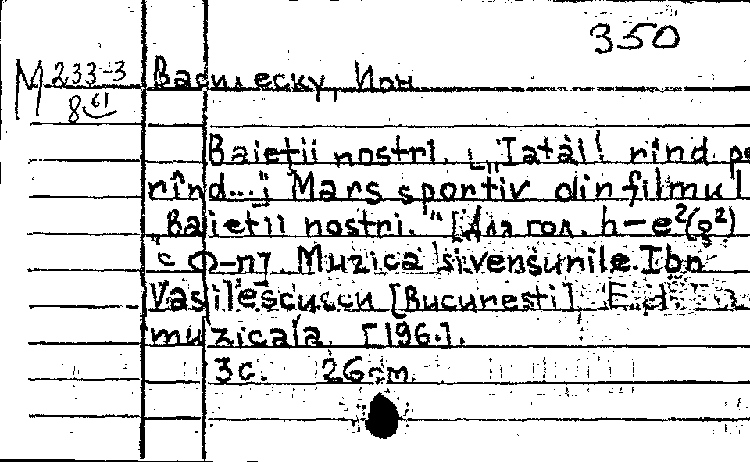 350
М 233-3
8
Василеску, Ион
Baieţii nostri. [„Iatăi! rînd pe
rînd...“] Mars sportiv din filmul
„Baietii nostri.“ [Для гол. h-e²(g²)
с ф-п]. Muzica si versunile. Ion
Vasilescu [Bucuresti]
muzicala. [196.].
3c. 26 cm.